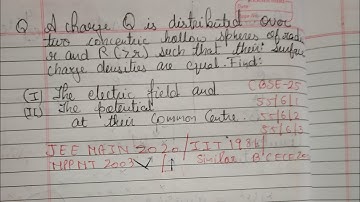 Q A charge Q is distributed over
two concentric hollow spheres of radii
r and R (>r) such that their surface
charge densities are equal. Find:
(I) The electric field and
(II) The potential
at their common centre.
CBSE-25
55/6/1
55/6/2
55/6/3
JEE MAIN 2020/ IIT 1981/
MPPMT 2003 Similar BCECE 20